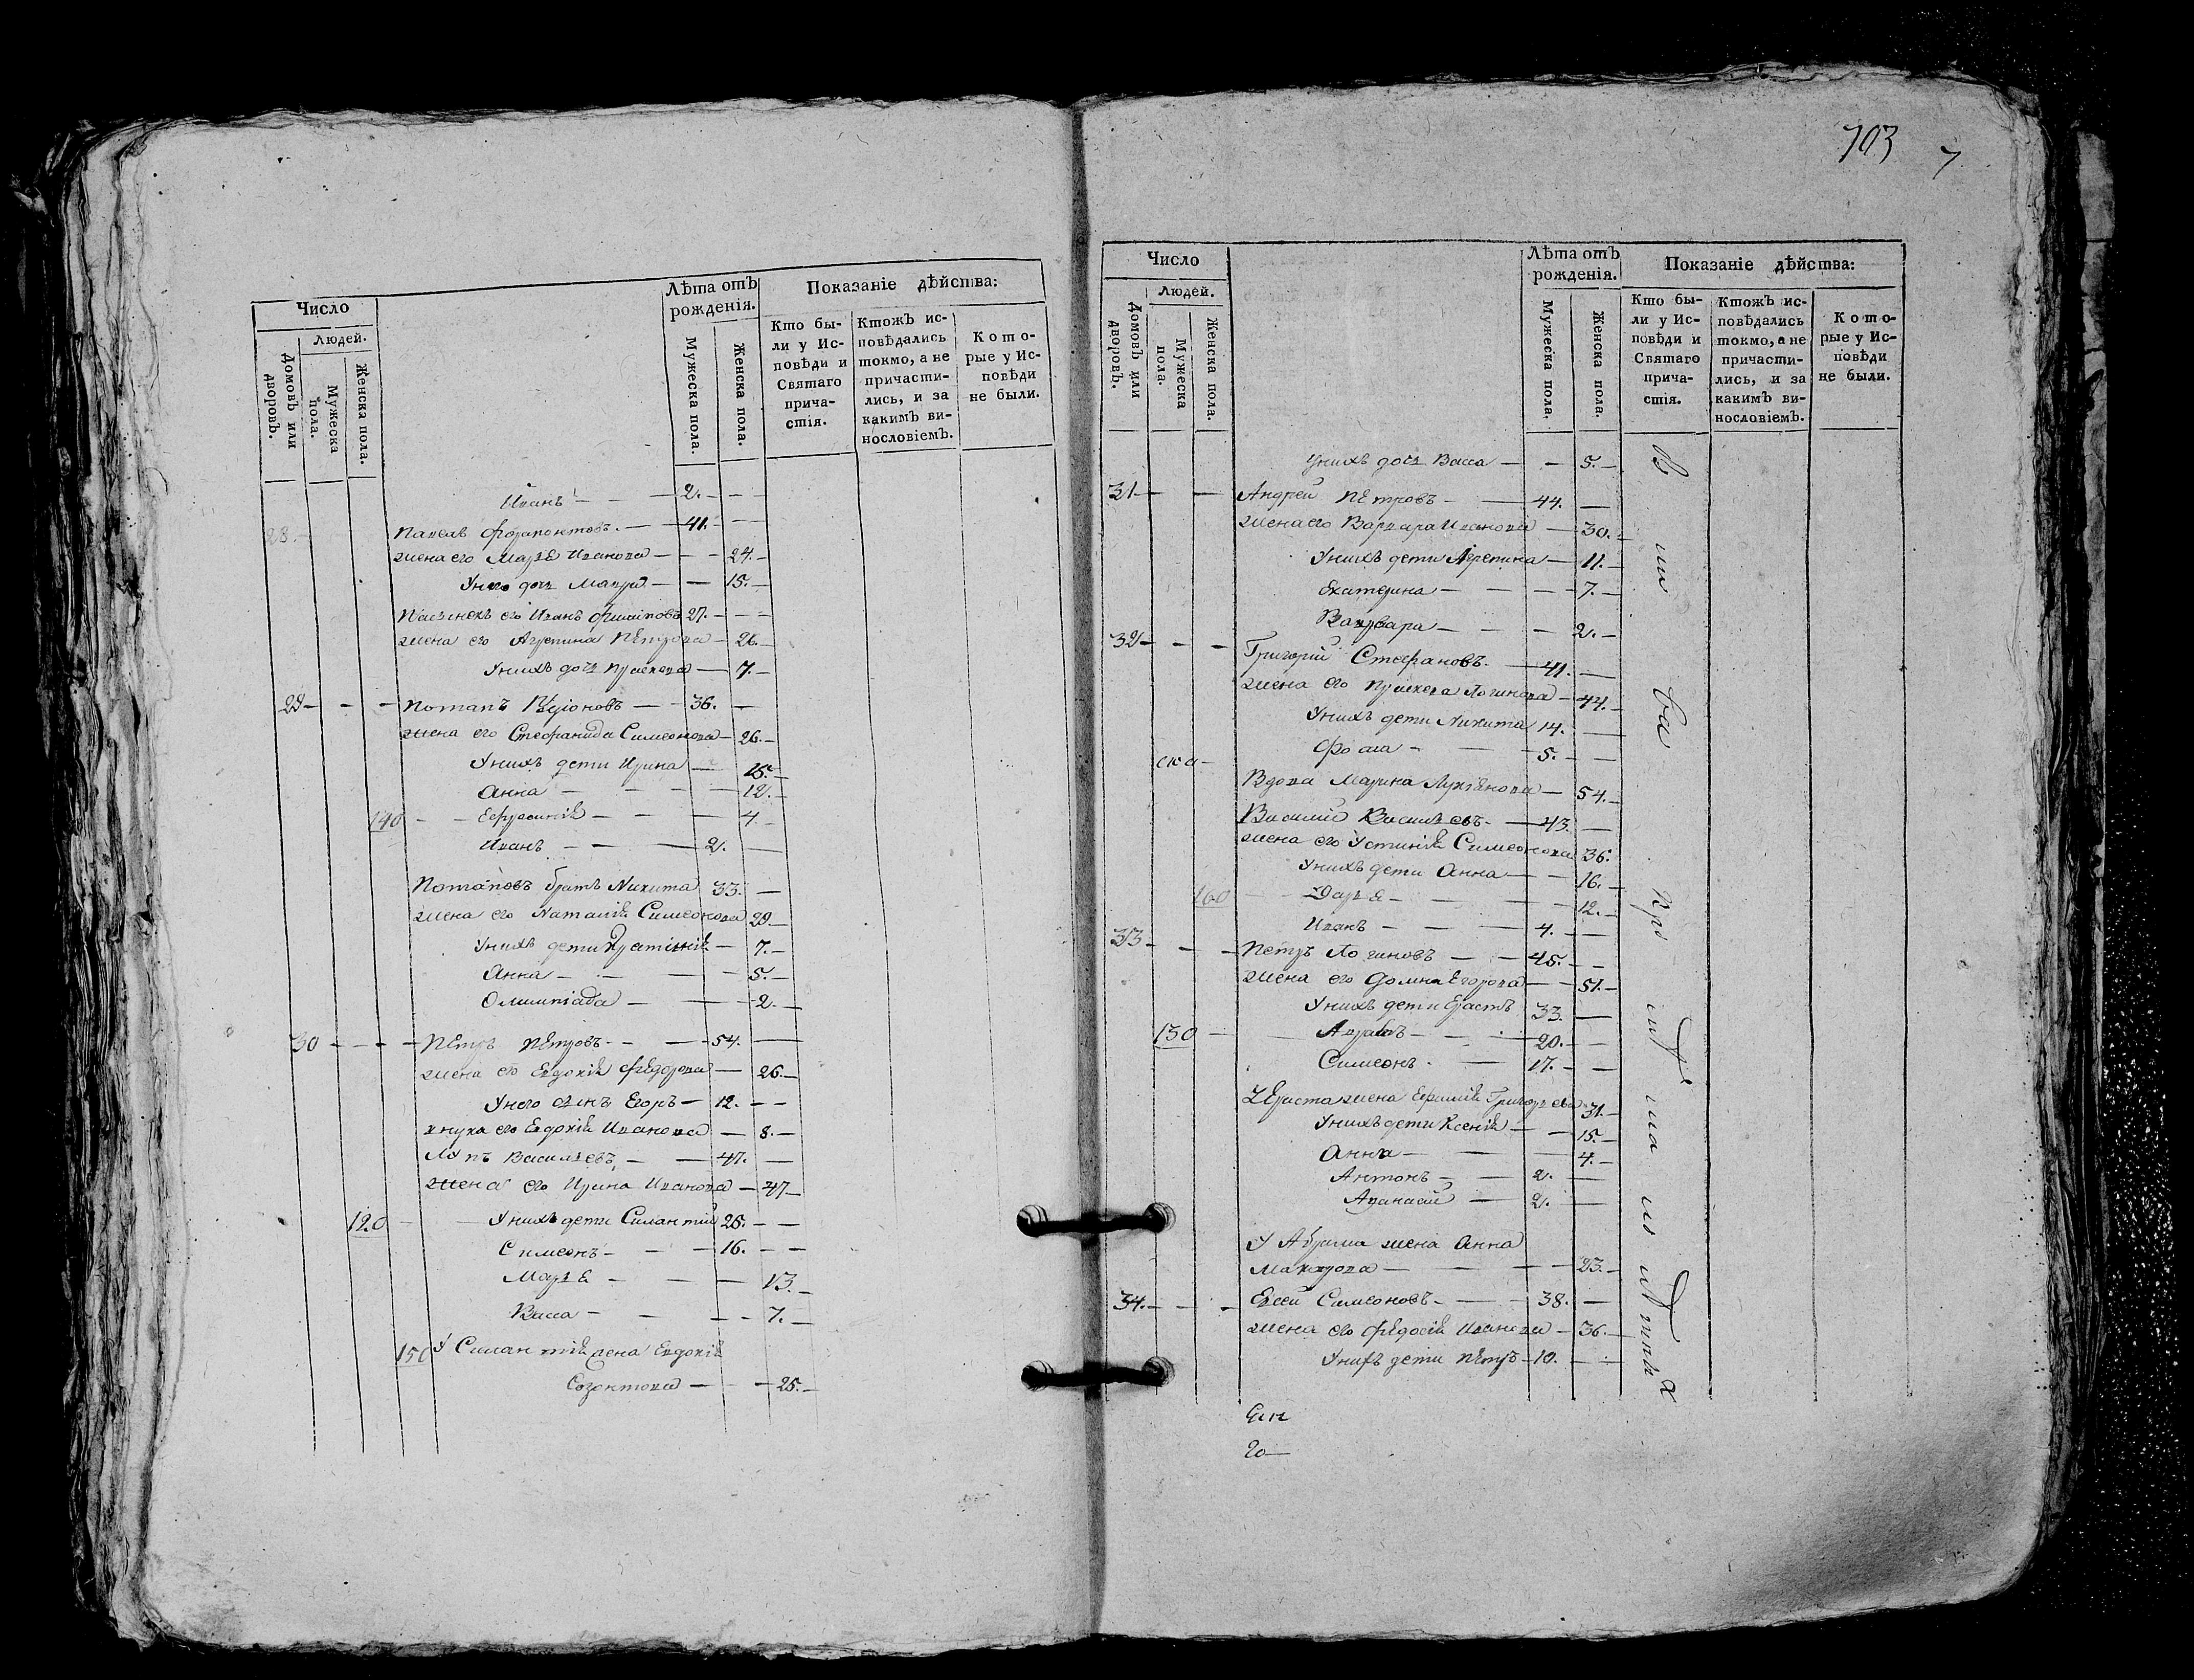 Число
Людей.
Домовъ или дворовъ.
Мужеска пола.
Женска пола.
Лѣта отъ рожденія.
Мужеска пола.
Женска пола.
Показаніе дѣйства:
Кто были у Исповѣди и Святаго причастія.
Ктожъ исповѣдались токмо, а не причастились, и за какимъ винословіемъ.
Которые у Исповѣди не были.
Иванъ — — 2. — —
28. Павелъ Ферапонтовъ. — 41. — —
жена его Марья Иванова — — 24. —
У него дочь Мавра — — 15. —
Пасынокъ его Иванъ 27. — —
жена его Агрепина Петрова — 26. —
У нихъ дочь Праскева — 7. —
29 — — — Потапъ — 36. —
жена его Стефанида Симеонова — 26. —
У нихъ дети Ирина — 15. —
Анна — — — 12. —
140 — — Ефросинія — — 4. —
Иванъ — — 2. —
Потаповъ братъ Никита 33. —
жена его Наталія Симеонова 29 —
У нихъ дети — 7. —
Анна — — 5. —
Олимпіада — — 2. —
30 — — — Петръ Петровъ — — 54. —
жена его Евдокія Федорова — 26. —
У него сынъ Егоръ — 12. — —
внука его Евдокія Иванова — 8. —
Лупъ Васильевъ — — 47. —
жена его Ирина Иванова — 47 —
120 — У нихъ дети Силантій 25. — —
Симеонъ — — 16. — —
Марья — — — 13. —
Васса — — — 7. —
150 У Силантія жена Евдокія
Созонтова — — 25. —
703 7
Число
Людей.
Домовъ или дворовъ.
Мужеска пола.
Женска пола.
Лѣта отъ рожденія.
Мужеска пола.
Женска пола.
Показаніе дѣйства:
Кто были у Исповѣди и Святаго причастія.
Ктожъ исповѣдались токмо, а не причастились, и за какимъ винословіемъ.
Которые у Исповѣди не были.
У нихъ дочь Васса — — 5. —
31 — — Андрей Петровъ — — 44. —
жена его Варвара Иванова — 30. —
У нихъ дети Агрепина — 11. —
Екатерина — — — 7. —
Варвара — — — 2. —
32 — — — Григорий Стефановъ. — 41. —
жена его Праскева Логинова — 44. —
У нихъ дети Никита 14. —
Фома — — 5. — —
Вдова Марина — 54. —
Василий Васильевъ. — 43. —
жена его Устинія Симеонова 36.
У нихъ дети Анна — — 16. —
160 Дарья — — — 12. —
Иванъ — — — 4. — —
33 — — — Петръ Логиновъ — — 45. — —
жена его Домна Егорова — — 51. —
У нихъ дети Ерастъ 33. —
130 — Авраамъ — — 20. — —
Симеонъ — — 17. — —
У Ераста жена Ефимія Григорьева 31. —
У нихъ дети Ксенія — — 15. —
Анна — — — 4. —
Антонъ — — 2. —
Афанасий — 2. —
У Абрама жена Анна
— — — 23. —
34. — — — Евсей Симеоновъ — — 38. —
жена его Федосія Иванова — 36. —
У нихъ дети Петръ — 10. — —
го —